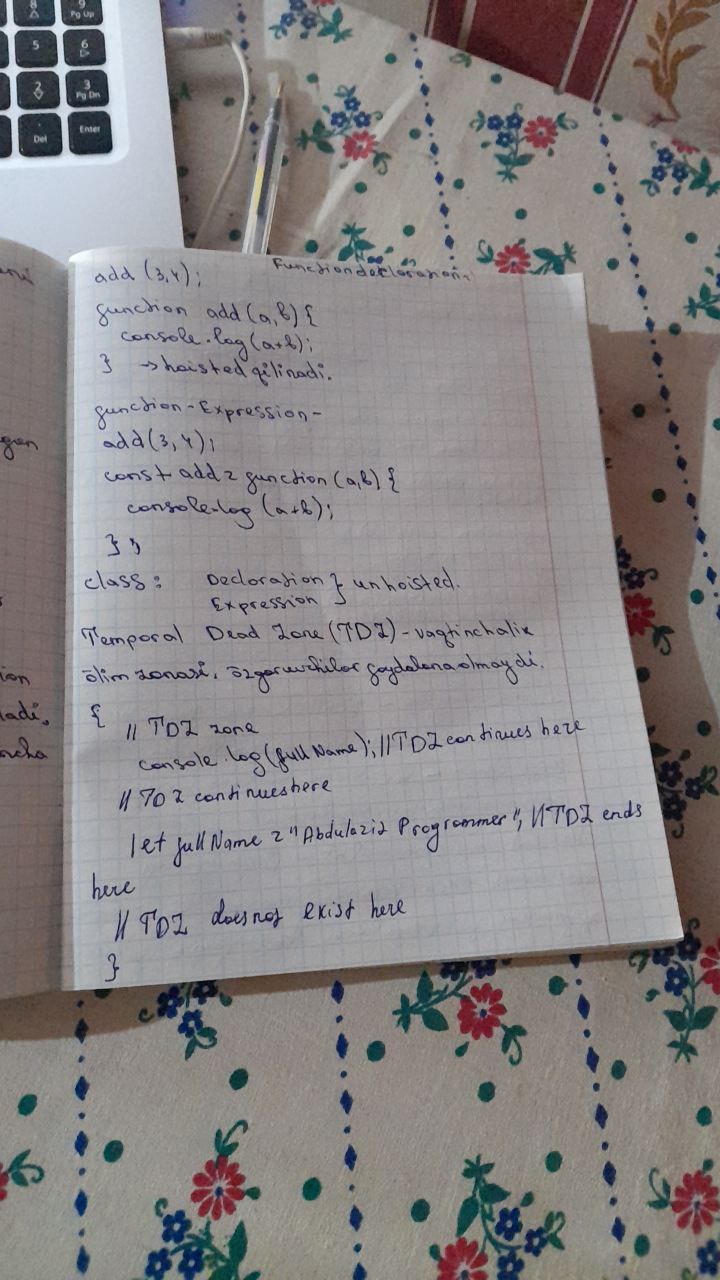 8
9
Pg Up
5
6
2
3
Pg Dn
Del
Enter
add (3,4);
Function declaration-
function add(a,b) {
console.log(a+b);
} → hoisted qilinadi.
function-Expression-
add(3,4);
const add = function (a,b) {
console.log (a+b);
};
class: Decloration } unhoisted.
Expression
Temporal Dead Zone (TDZ) - vaqtinchalik
õlim zonasi, õzgaruvchilar foydalana olmaydi.
{ // TDZ zone
console.log(full Name); // TDZ continues here
// TDZ continues here
let full Name = "Abdulaziz Programmer"; // TDZ ends
here
// TDZ does not exist here
}
gan
ion
ladi,